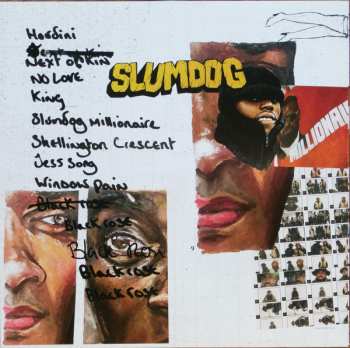 Hordini
Next of Kin
No Love
King
Slumdog Millionaire
Skellington Crescent
Jess Song
Window Pain
Black rose
Black rose
Black Rose
Black rose
Black rose
SLUMDOG
MILLIONAI